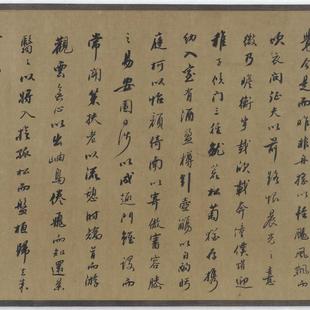 覺今是而昨非舟搖以怡颺風飄而
吹衣問征夫以前路恨晨光之熹
微乃瞻衡宇載欣載奔僮僕歡迎
稚子候門三徑就荒松菊猶存攜
幼入室有酒盈樽引壺觴以自酌眄
庭柯以怡顏倚南以寄傲審容膝
之易安園日涉以成趣門雖設而
常關策扶老以流憩時矯首而游
觀雲無心以出岫鳥倦飛而知還景
翳翳以將入撫孤松而盤桓歸去來